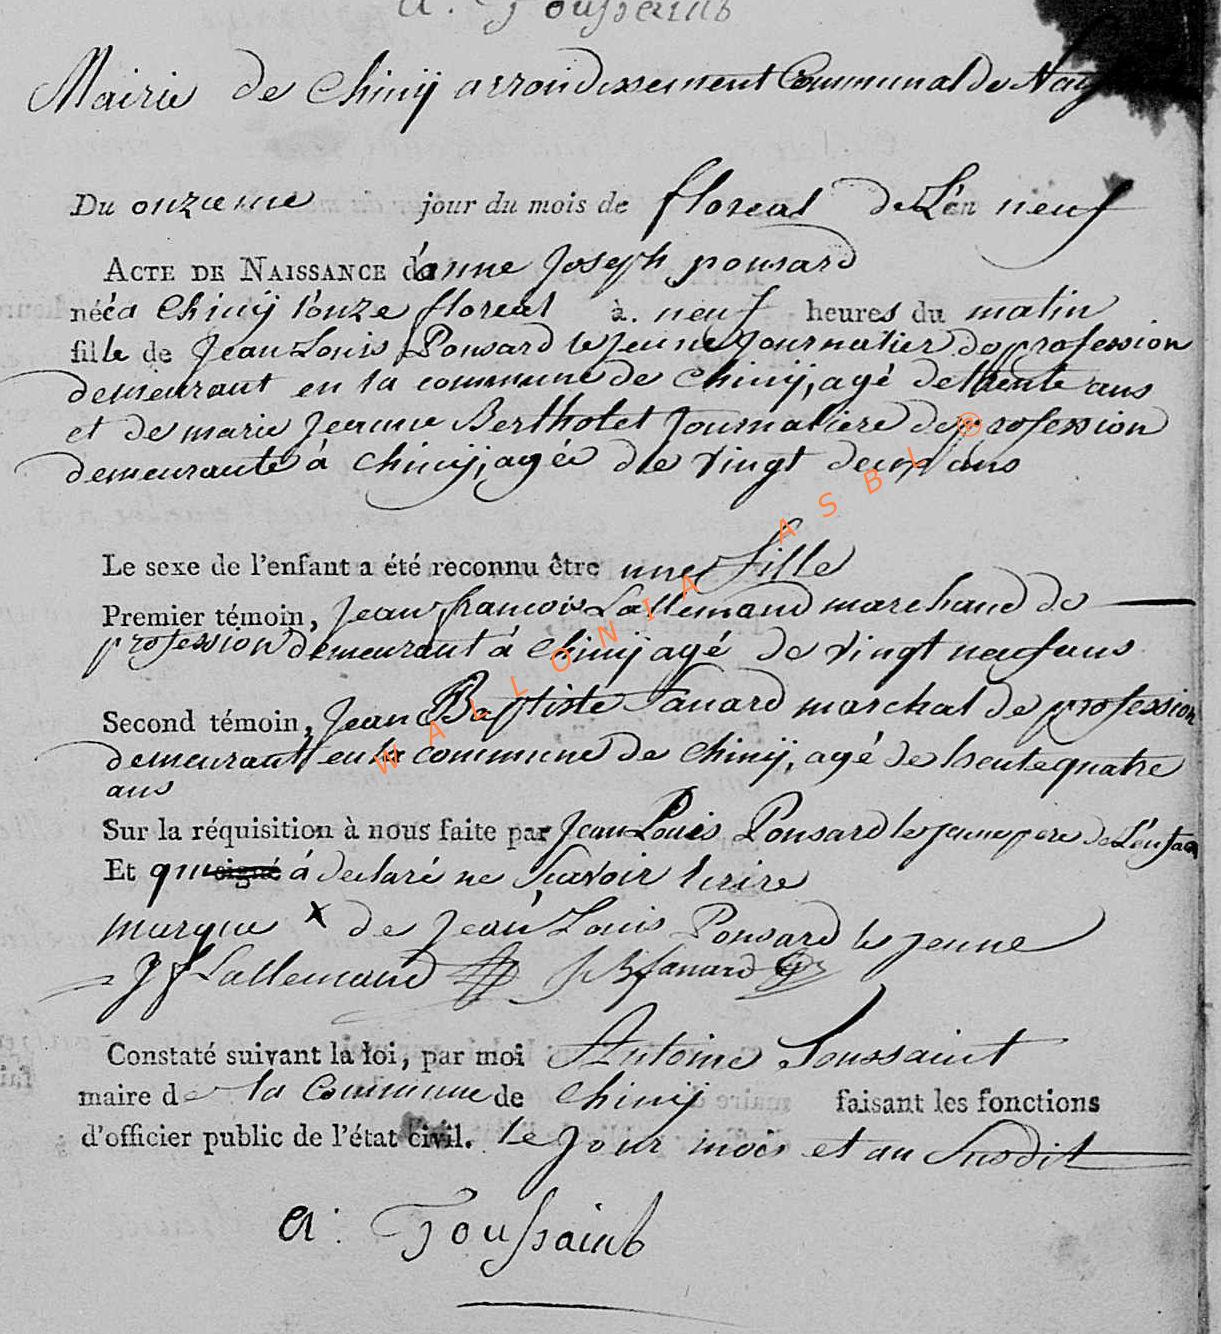 a. Toussaint
Mairie de Chinÿ arrondissement Communal de
Du onzieme jour du mois de floreal de L'an neuf
ACTE DE NAISSANCE d'anne Joseph ponsard
née a Chinÿ l'onze floreal à. neuf heures du matin
fille de Jean Louis Ponsard le jeune Journalier de profession
demeurant en la commune de Chinÿ, agé de trente ans
et de marie Jeanne Berthotet Journaliere de profession
demeurante á Chinÿ, agée de vingt deux ans
Le sexe de l'enfant a été reconnu être une fille
Premier témoin, Jean francois Lallemand marchand de
profession demeurant á Chinÿ agé de vingt neuf ans
Second témoin, Jean Baptiste fanard marchal de profession
demeurant en la commune de Chinÿ, agé de trente quatre
ans
Sur la réquisition à nous faite par Jean Louis Ponsard le jeune pere de L'enfan
Et qui signé á declaré ne Scavoir Ecrire
marque x de Jean Louis Ponsard le jeune
J f Lallemand J B fanard
Constaté suivant la loi, par moi Antoine Toussaint
maire de la Commune de Chinÿ faisant les fonctions
d'officier public de l'état civil. le Jour mois et an Susdit
a. Toussaint
WALLONIA ASBL ®